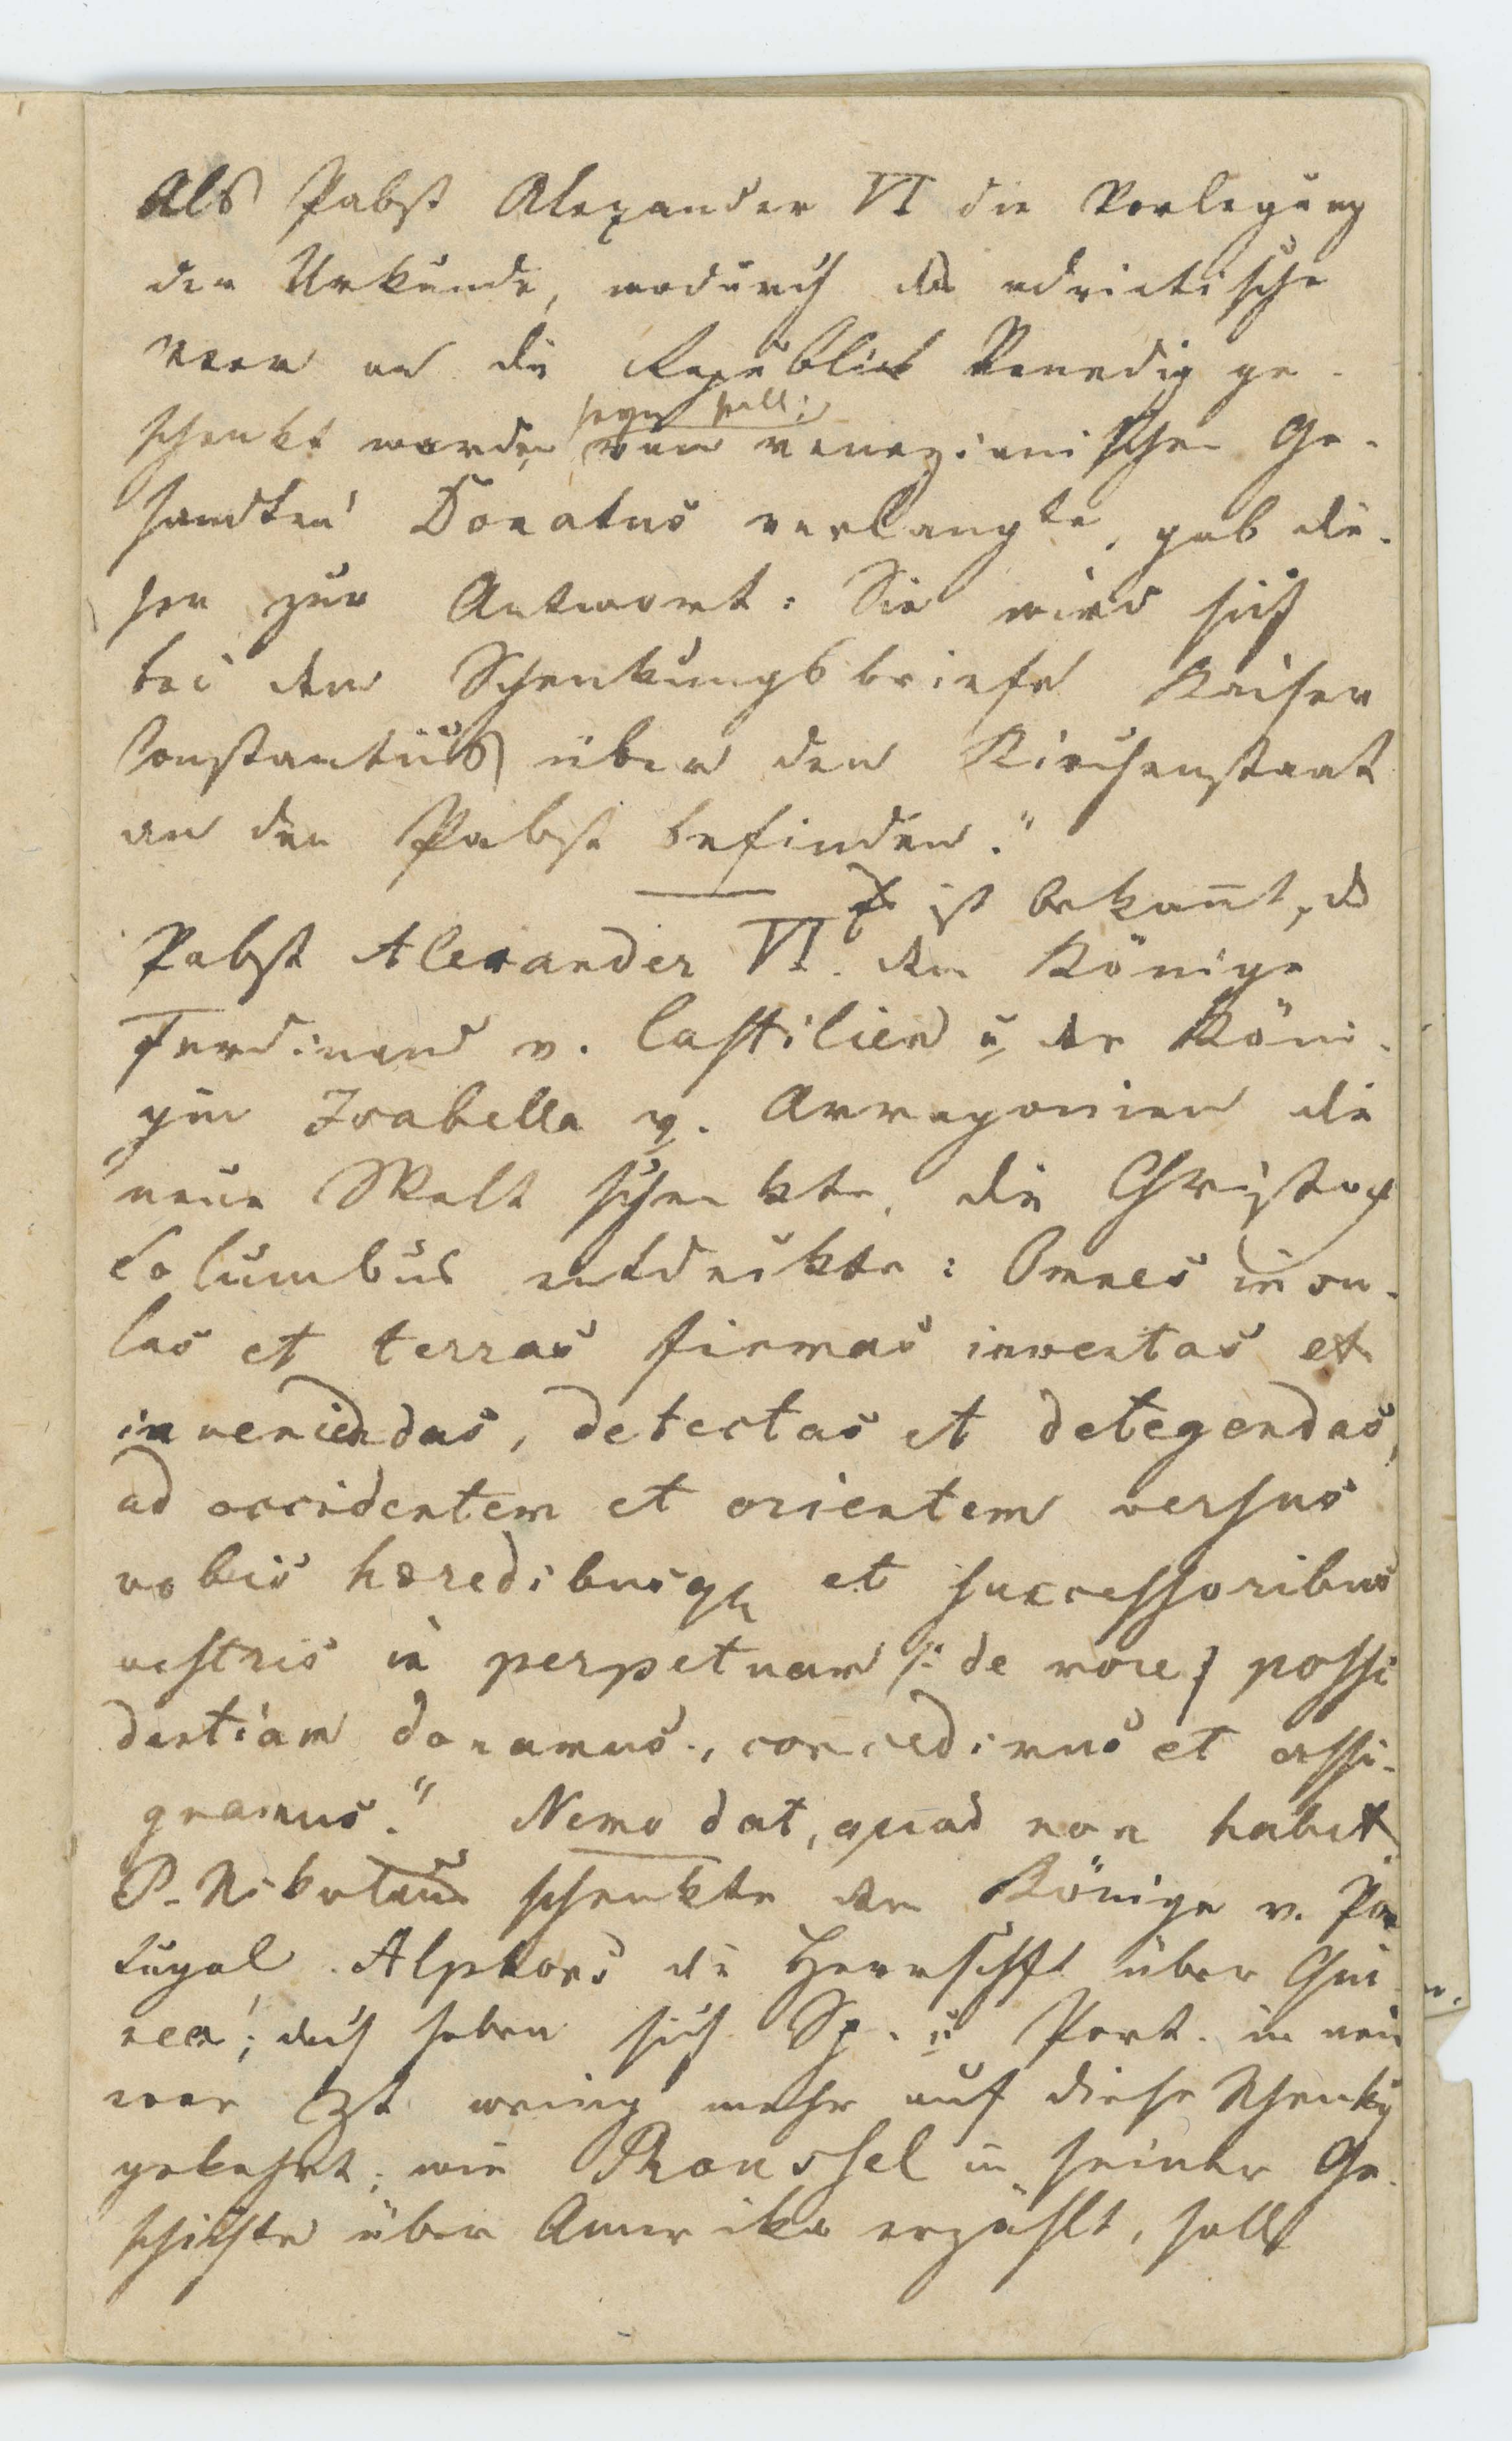 Als Pabst Alexander VI die Vorlegung
der Urkunde, wodurch das adriatische
Meer an die Republick Venedig ge-
seyn soll:
schenkt worden vom venezianischen Ge-
sandten Donatus verlangte, gab die-
ser zur Antwort: Sie wird sich
bei dem Schenkungsbriefe Kaiser
Constantins über den Kirchenstaat
an den Pabst befinden."
Es ist bekannt, ds
Pabst Alexander VI. dem Könige
Ferdinand v. Castilien u der Köni-
gin Isabella v. Arragonien die
neue Welt schenkte, die Christoph
Columbus entdeckte: Omnes insu-
las et terras firmas inventas et
inveniendas, detectas et detegendas,
ad occidentem et orientem versus
vobis hæredibusq et successoribus
vestris in perpetuam /: de more / possi
dentiam donamus, concedimus et assi-
gnamus." Nemo dat, quod non habet.
P. Nikolaus schenkte dem Könige v. Por
tugal Alphons die Herrschft über Gui
nea; doch haben sich Sp. u Port. in neu
rer Zt wenig mehr auf diese Schenkg
gekehrt; wie in seiner Ge-
schichte über Amerika erzählt, soll